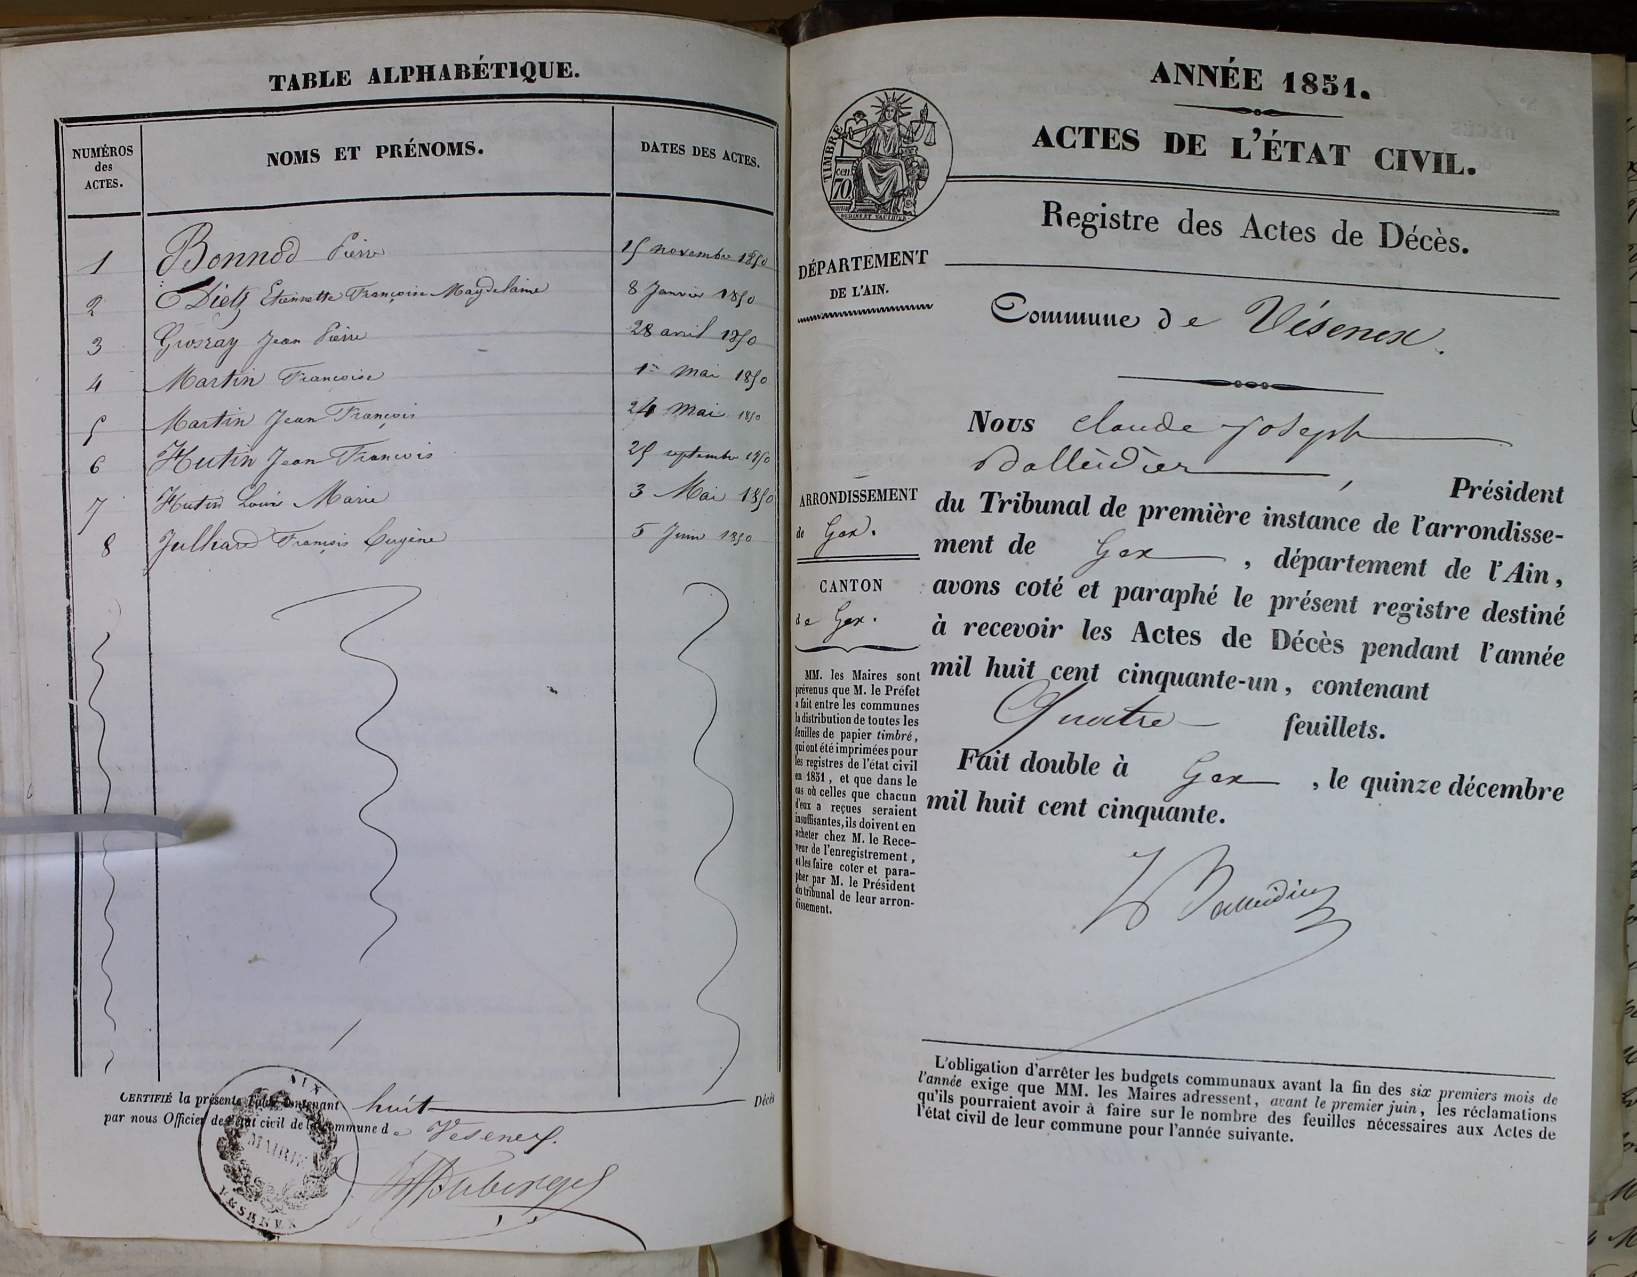 TABLE ALPHABÉTIQUE.
NUMÉROS des ACTES. NOMS ET PRÉNOMS. DATES DES ACTES.
1 Bonnod Pierre 15 novembre 1850
2 Dietz Etiennette Françoise Magdelaine 8 Janvier 1850
3 Grosray Jean Pierre 28 avril 1850
4 Martin Françoise 1er mai 1850
5 Martin Jean François 24 mai 1850
6 Hutin Jean François 25 septembre 1850
7 Hutin Louis Marie 3 Mai 1850
8 Julliard François Eugène 5 Juin 1850
CERTIFIÉ la présente Table contenant huit Décès
par nous Officier de l'état civil de la commune de Vesenex.
MAIRIE
VESENEX
ANNÉE 1851.
ACTES DE L'ÉTAT CIVIL.
TIMBRE
70 cen
Registre des Actes de Décès.
DÉPARTEMENT
DE L'AIN.
Commune de Vésenex.
Nous Claude Joseph
Balleidier, Président
du Tribunal de première instance de l'arrondisse-
ment de Gex, département de l'Ain,
avons coté et paraphé le présent registre destiné
à recevoir les Actes de Décès pendant l'année
mil huit cent cinquante-un, contenant
Quatre feuillets.
Fait double à Gex, le quinze décembre
mil huit cent cinquante.
Balleidier
ARRONDISSEMENT
de Gex.
CANTON
de Gex.
MM. les Maires sont
prévenus que M. le Préfet
a fait entre les communes
la distribution de toutes les
feuilles de papier timbré,
qui ont été imprimées pour
les registres de l'état civil
en 1851, et que dans le
cas où celles que chacun
d'eux a reçues seraient
insuffisantes, ils doivent en
acheter chez M. le Rece-
veur de l'enregistrement,
et les faire coter et para-
pher par M. le Président
du tribunal de leur arron-
dissement.
L'obligation d'arrêter les budgets communaux avant la fin des six premiers mois de
l'année exige que MM. les Maires adressent, avant le premier juin, les réclamations
qu'ils pourraient avoir à faire sur le nombre des feuilles nécessaires aux Actes de
l'état civil de leur commune pour l'année suivante.